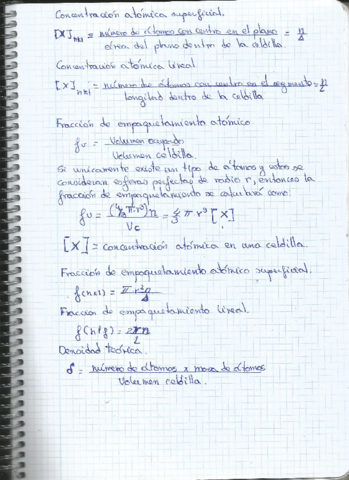 Concentración atómica superficial.
[X]hkl = número de átomos con centro en el plano / área del plano dentro de la celdilla = n/A
Concentración atómica lineal.
[X]hkl = número de átomos con centro en el segmento / longitud dentro de la celdilla = n/L
Fracción de empaquetamiento atómico.
fv = Volumen ocupado / Volumen celdilla
Si unicamente existe un tipo de átomos y estos se
consideran esferas perfectas de radio r, entonces la
fracción de empaquetamiento se calculará como:
fv = (4/3 π r³) n / Vc = 4/3 π r³ [X]
[X] = concentración atómica en una celdilla.
Fracción de empaquetamiento atómico superficial.
f(hkl) = π r² n / A
Fracción de empaquetamiento lineal.
f(hkl) = 2rn / L
Densidad teórica.
δ = número de átomos x masa de átomos / Volumen celdilla.